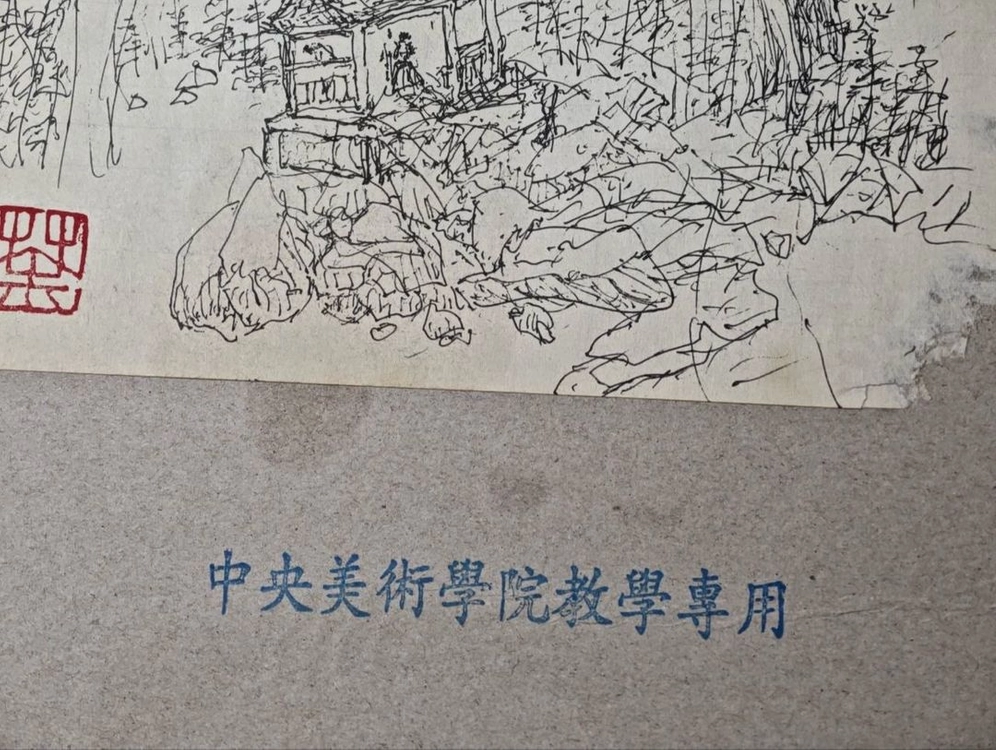 中央美術學院教學專用